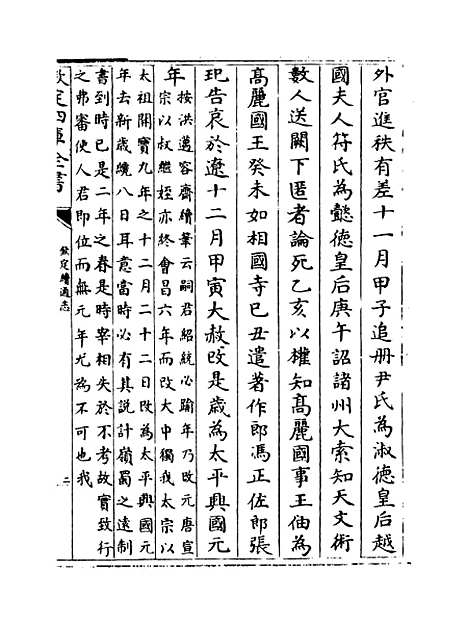 外官進秩有差十一月甲子追册尹氏為淑德皇后越
國夫人符氏為懿德皇后庚午詔諸州大索知天文術
數人送闕下匿者論死乙亥以權知高麗國事王伷為
高麗國王癸未如相國寺己丑遣著作郎馮正佐郎張
玘告哀於遼十二月甲寅大赦改是歲為太平興國元
年
按洪邁容齋續筆云嗣君紹統必踰年乃改元唐宣
宗以叔繼姪亦終會昌六年而改大中獨我太宗以
太祖開寶九年之十二月二十二日改為太平興國元
年去新歲纔八日耳意當時必有其說計嶺蜀之遠制
書到時已是二年之春是時宰相失於不考故實致行
之弗審使人君即位而無元年尤為不可也我
欽定四庫全書
欽定續通志
二